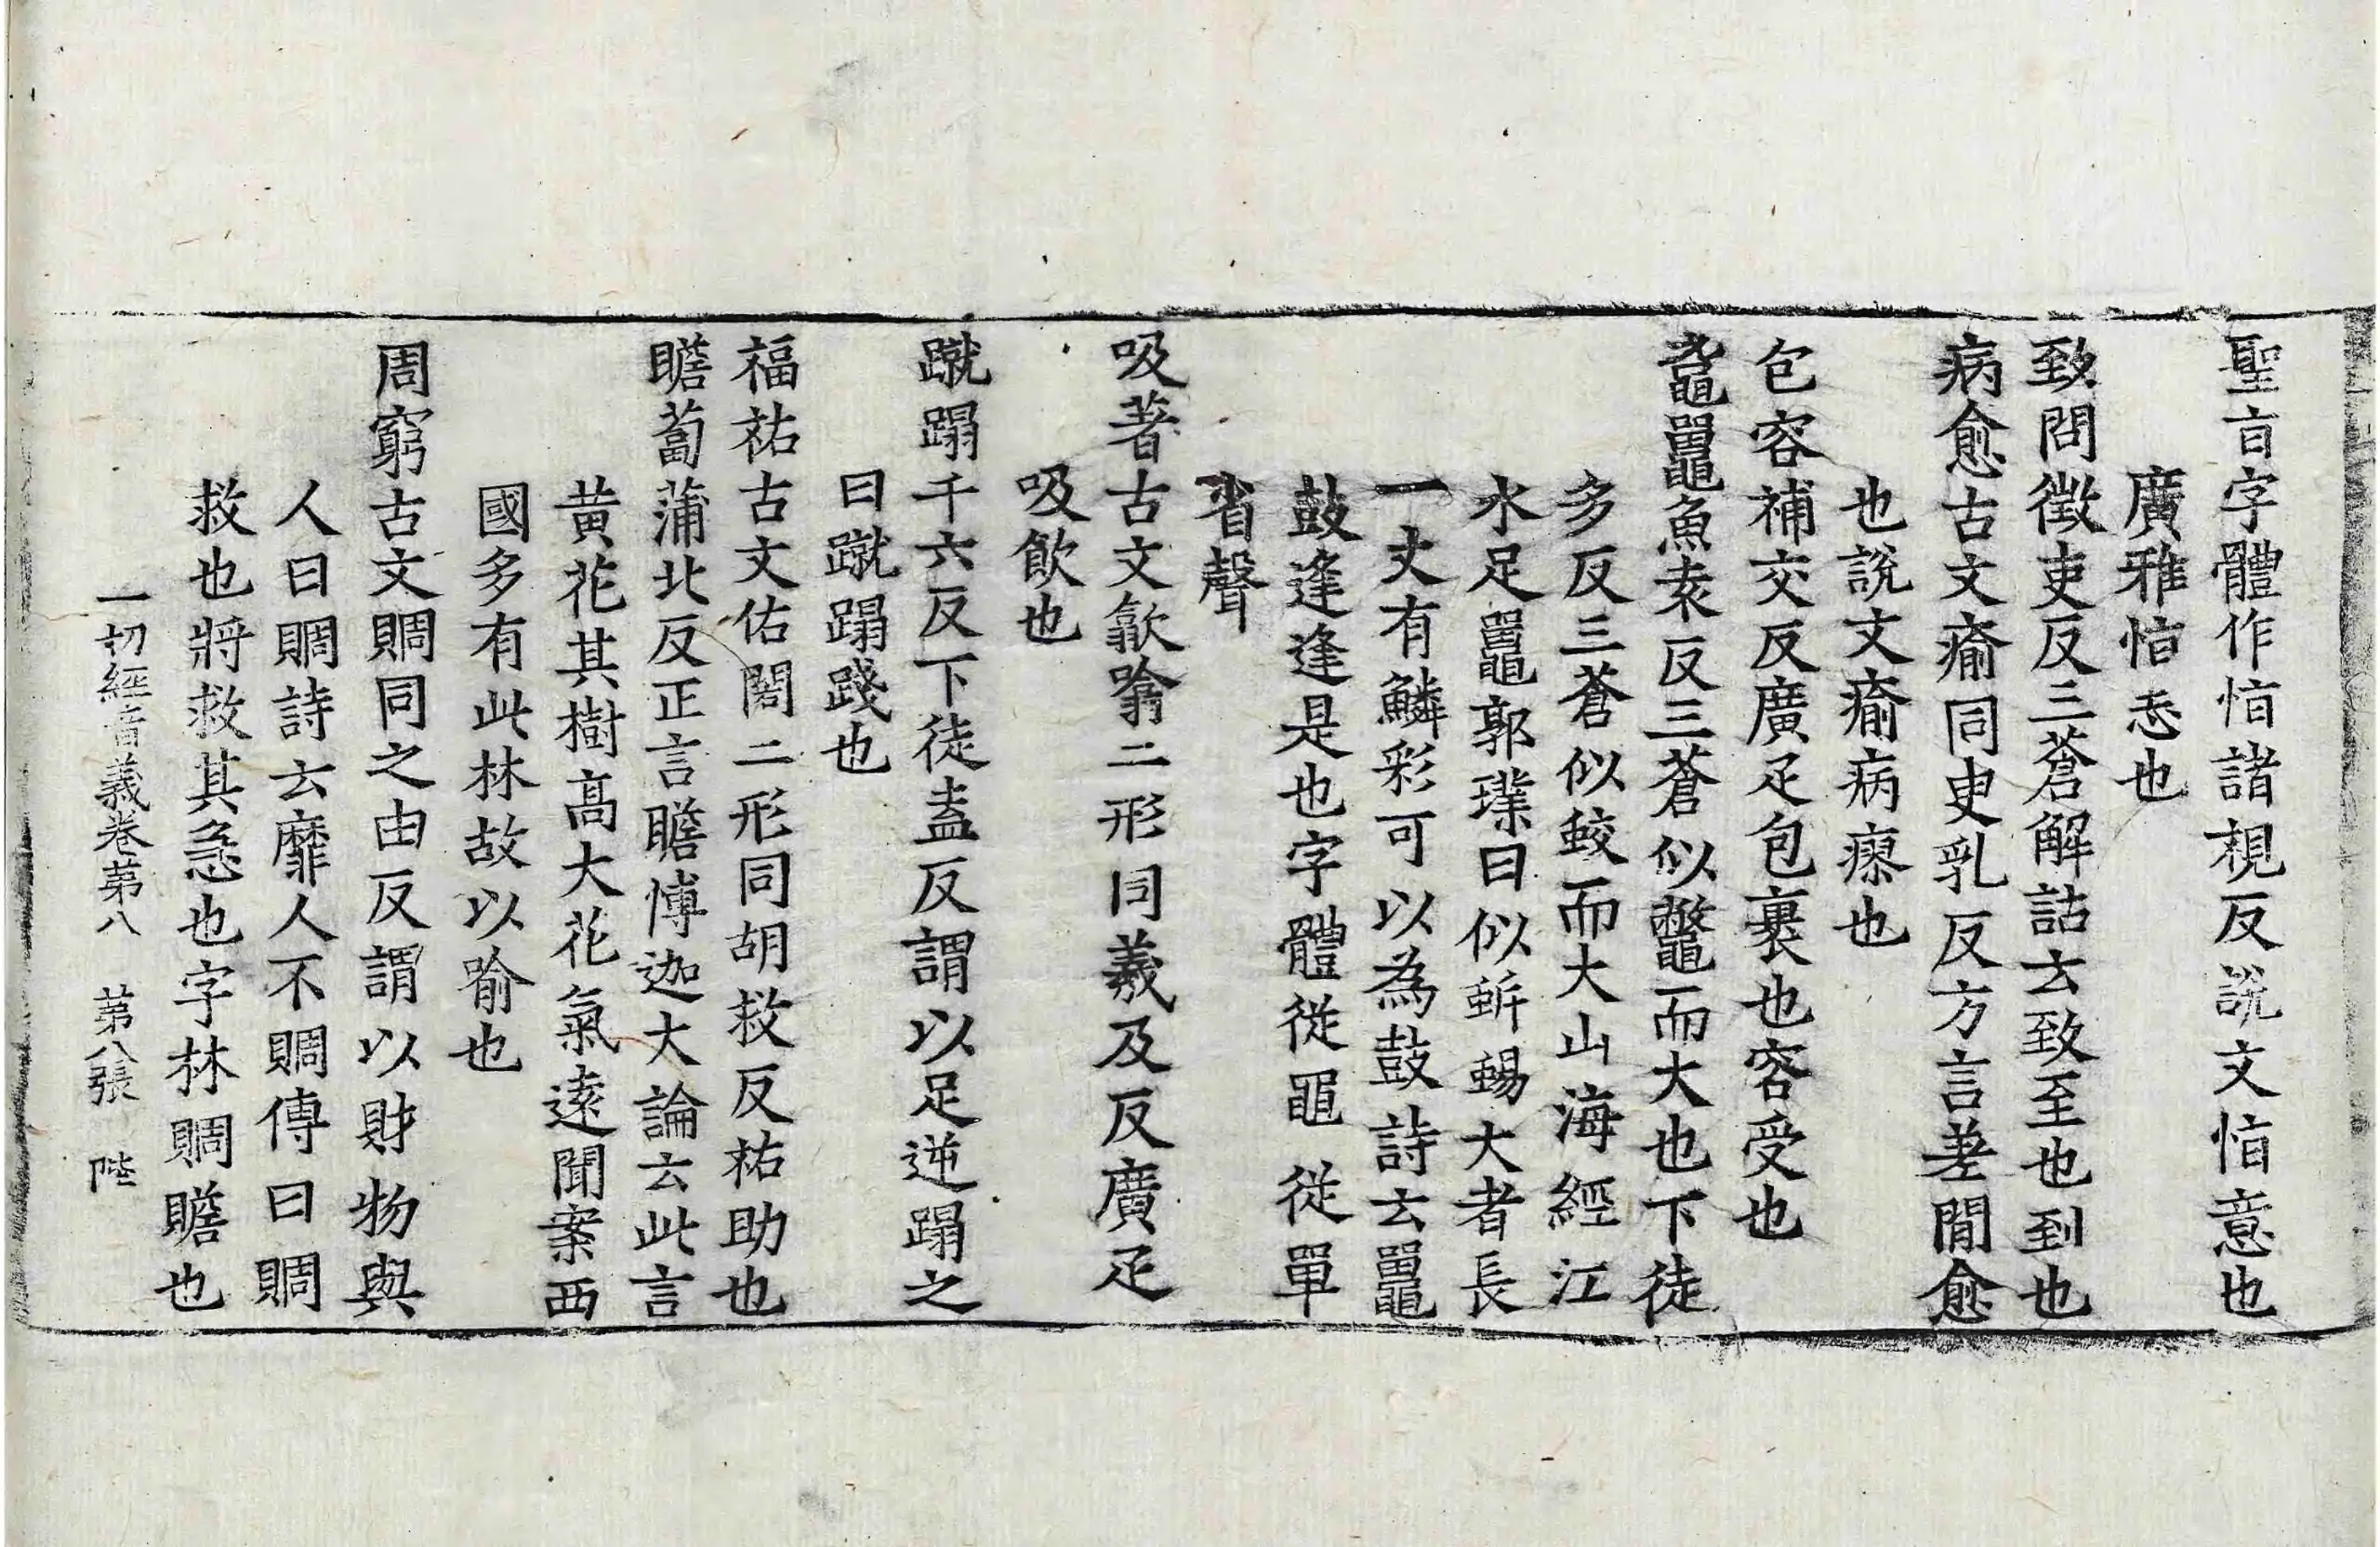 聖㫖字體作恉諸視反說文恉意也
廣雅恉志也
致問徵吏反三蒼解詁云致至也到也
病愈古文瘉同臾乳反方言差閒愈
也說文瘉病瘳也
包容補交反廣疋包裹也容受也
黿鼉魚袁反三蒼似鼈而大也下徒
多反三蒼似蛟而大山海經江
水足鼉郭璞曰似蜥蜴大者長
一丈有鱗彩可以為鼓詩云鼉
鼓逢逢是也字體從黽從單
省聲
吸著古文歙噏二形同羲及反廣疋
吸飲也
蹴蹋千六反下徒盍反謂以足逆蹋之
曰蹴蹋踐也
福祐古文佑閣二形同胡救反祐助也
瞻蔔蒲北反正言瞻愽迦大論云此言
黃花其樹高大花氣逺聞案西
國多有此林故以喻也
周窮古文賙同之由反謂以財物與
人曰賙詩云靡人不賙傳曰賙
救也將救其急也字林賙贍也
一切經音義卷苐八 苐八張 陛